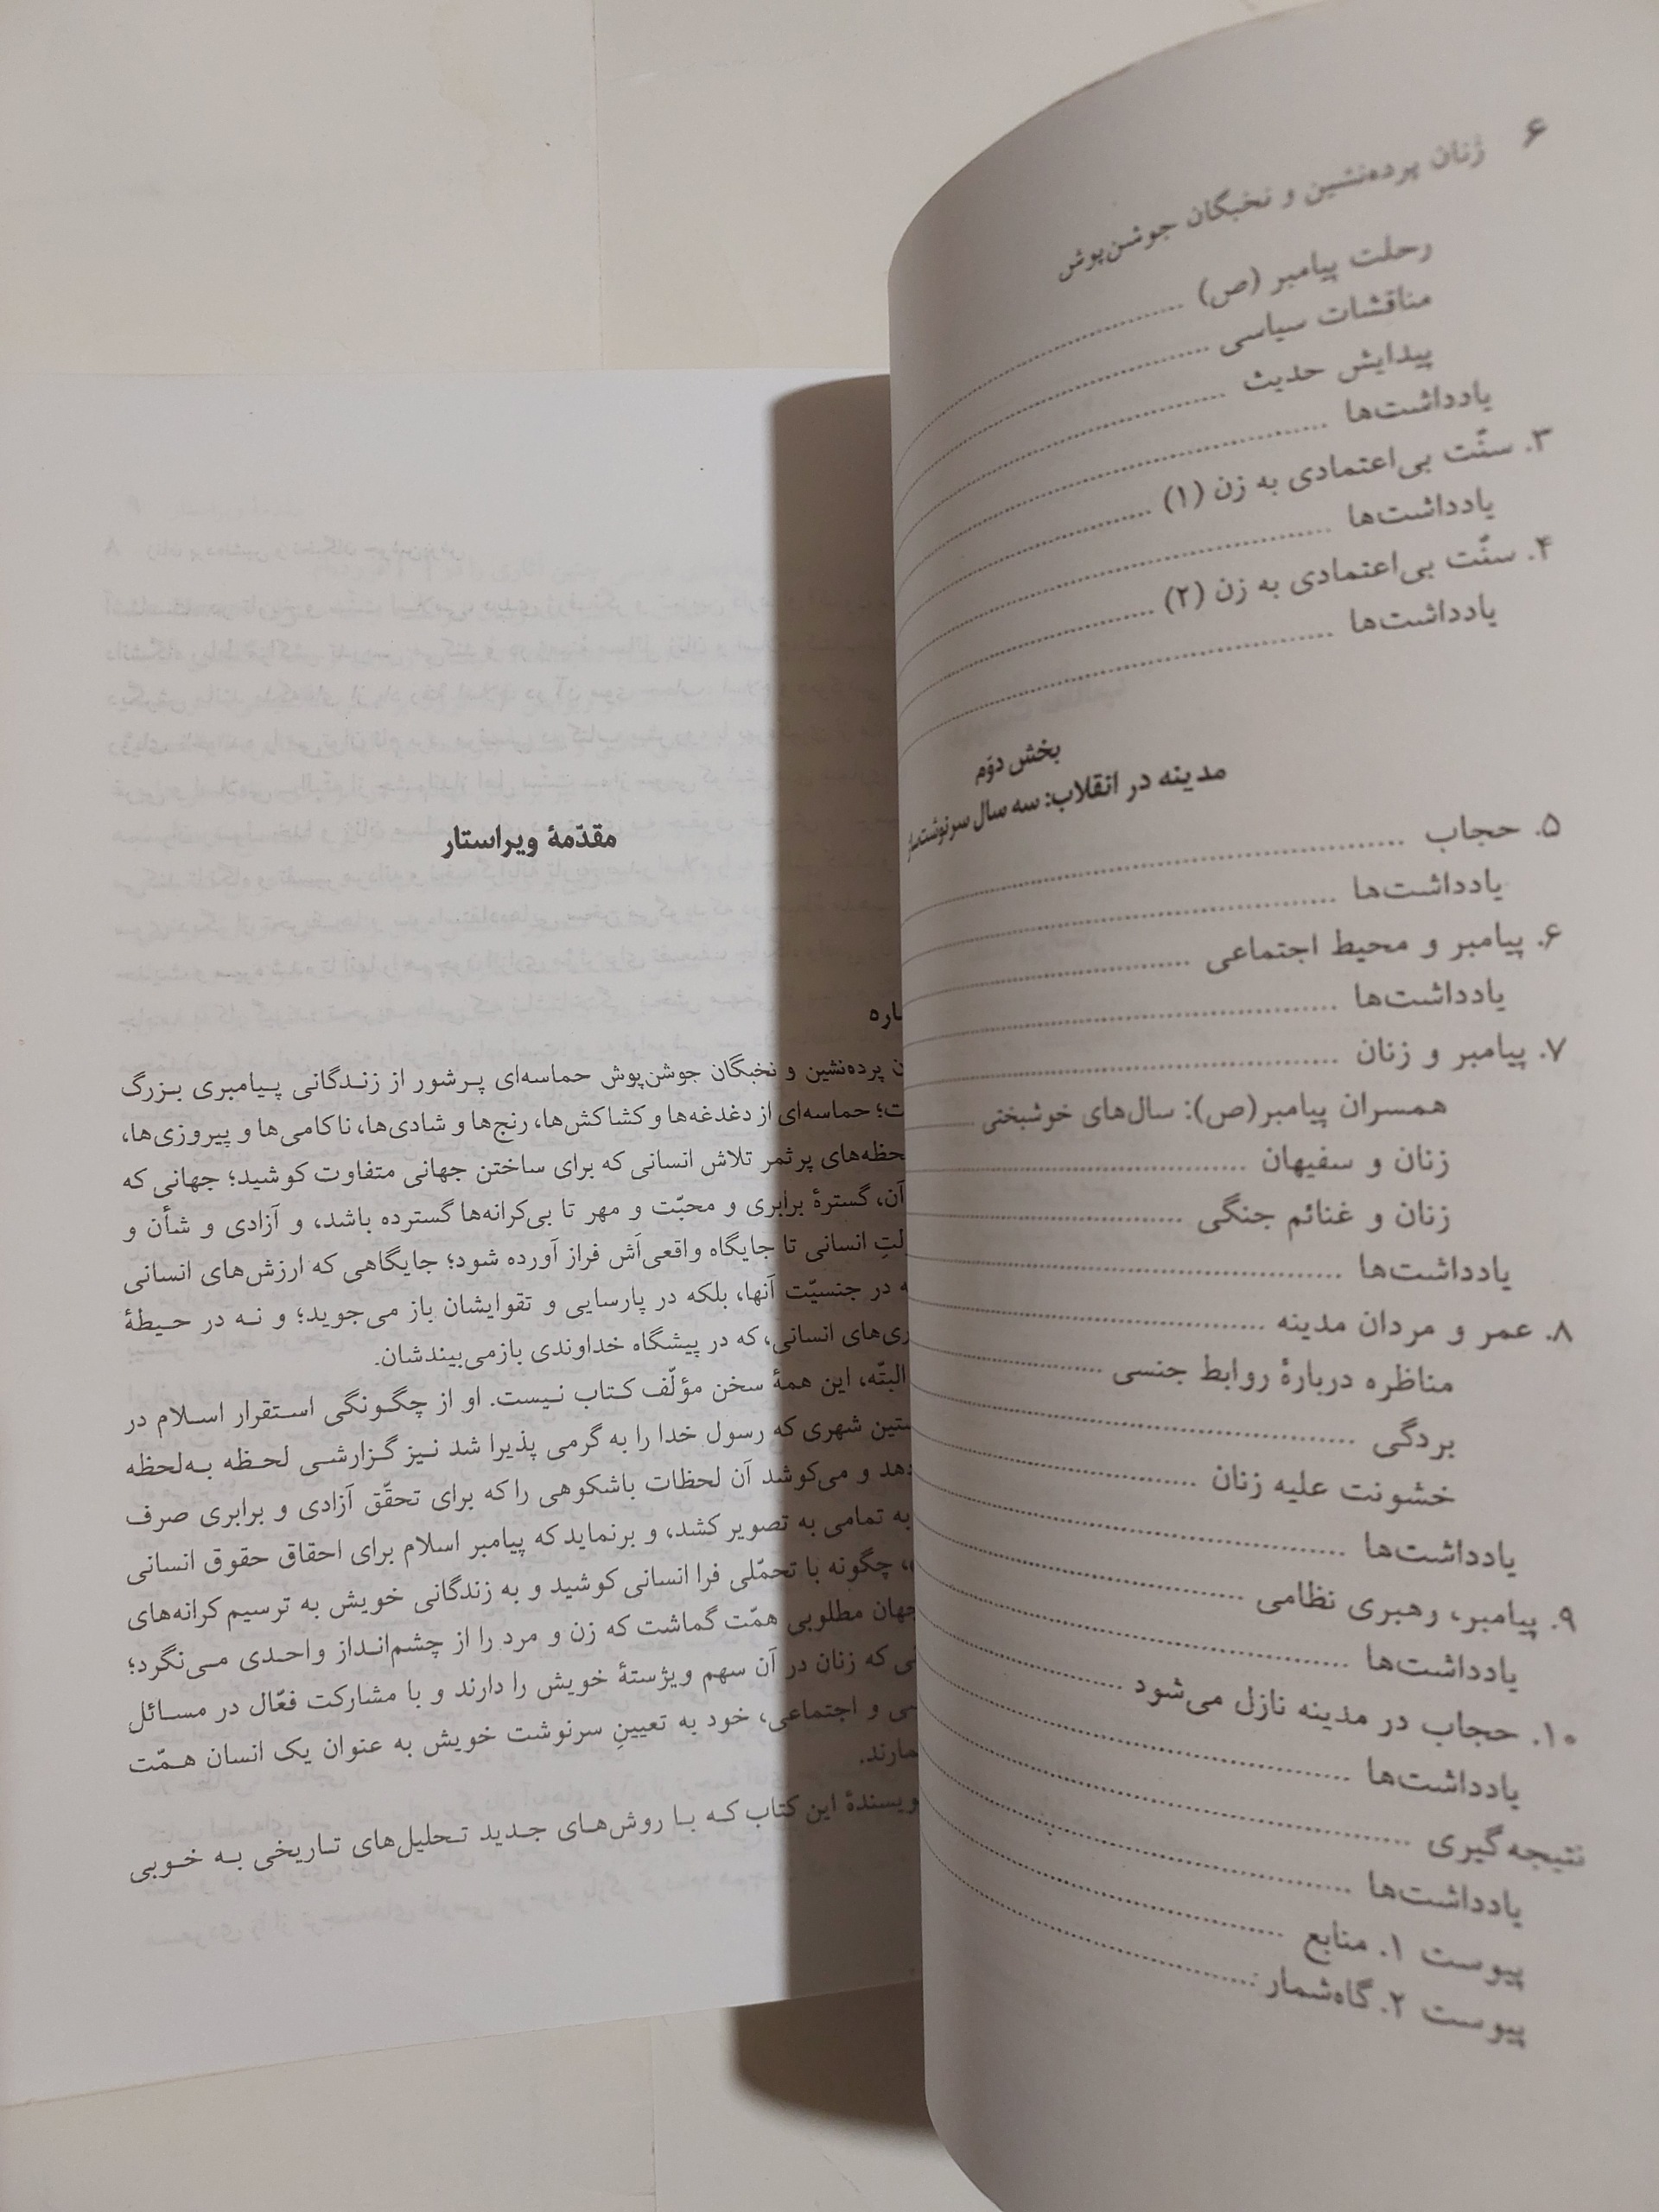 ۶ زنان پرده‌نشین و نخبگان جوشن‌پوش
رحلت پیامبر (ص)
مناقشات سیاسی
پیدایش حدیث
یادداشت‌ها
۳. سنّت بی‌اعتمادی به زن (۱)
یادداشت‌ها
۴. سنّت بی‌اعتمادی به زن (۲)
یادداشت‌ها
بخش دوّم
مدینه در انقلاب: سه سال سرنوشت‌ساز
۵. حجاب
یادداشت‌ها
۶. پیامبر و محیط اجتماعی
یادداشت‌ها
۷. پیامبر و زنان
همسران پیامبر(ص): سال‌های خوشبختی
زنان و سفیهان
زنان و غنائم جنگی
یادداشت‌ها
۸. عمر و مردان مدینه
مناظره دربارهٔ روابط جنسی
بردگی
خشونت علیه زنان
یادداشت‌ها
۹. پیامبر، رهبری نظامی
یادداشت‌ها
۱۰. حجاب در مدینه نازل می‌شود
یادداشت‌ها
نتیجه‌گیری
یادداشت‌ها
پیوست ۱. منابع
پیوست ۲. گاه‌شمار
مقدّمهٔ ویراستار
پرده‌نشین و نخبگان جوشن‌پوش حماسه‌ای پرشور از زندگانی پیامبری بزرگ
حماسه‌ای از دغدغه‌ها و کشاکش‌ها، رنج‌ها و شادی‌ها، ناکامی‌ها و پیروزی‌ها،
پرثمر تلاش انسانی که برای ساختن جهانی متفاوت کوشید؛ جهانی که
آن، گسترهٔ برابری و محبّت و مهر تا بی‌کرانه‌ها گسترده باشد، و آزادی و شأن و
انسانی تا جایگاه واقعی‌اَش فراز آورده شود؛ جایگاهی که ارزش‌های انسانی
در جنسیّت آنها، بلکه در پارسایی و تقوایشان باز می‌جوید؛ و نه در حیطهٔ
انسانی، که در پیشگاه خداوندی بازمی‌بیندشان.
البتّه، این همهٔ سخن مؤلّف کتاب نیست. او از چگونگی استقرار اسلام در
شهری که رسول خدا را به گرمی پذیرا شد نیز گزارشی لحظه به‌لحظه
و می‌کوشد آن لحظات باشکوهی را که برای تحقّق آزادی و برابری صرف
به تمامی به تصویر کشد، و برنماید که پیامبر اسلام برای احقاق حقوق انسانی
چگونه با تحمّلی فرا انسانی کوشید و به زندگانی خویش به ترسیم کرانه‌های
جهان مطلوبی همّت گماشت که زن و مرد را از چشم‌انداز واحدی می‌نگرد؛
که زنان در آن سهم ویژستهٔ خویش را دارند و با مشارکت فعّال در مسائل
و اجتماعی، خود به تعیینِ سرنوشت خویش به عنوان یک انسان همّت
این کتاب که با روش‌های جدید تحلیل‌های تاریخی به خوبی